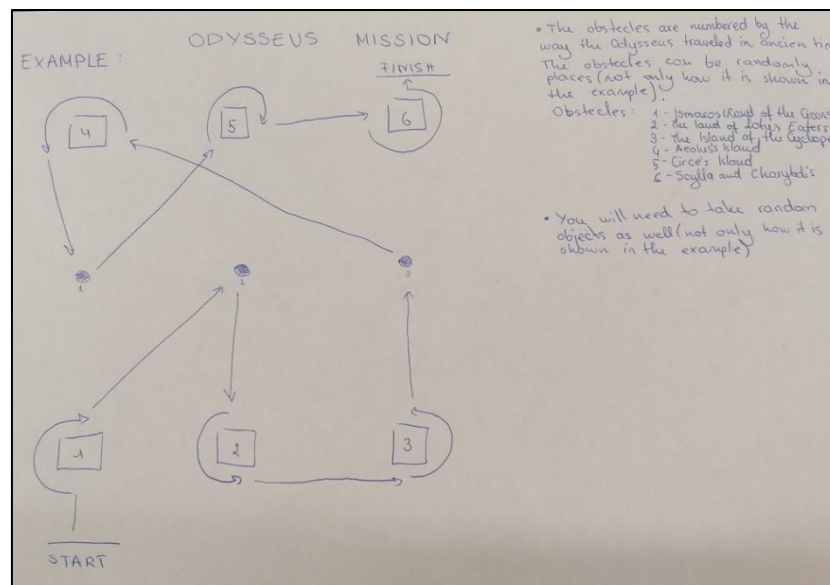 ODYSSEUS MISSION
EXAMPLE:
FINISH
4
5
6
1
2
3
1
2
3
START
• The obstecles are numbered by the
way the Odysseus traveled in ancient
The obstecles can be randomly
places (not only how it is shown in
the example).
Obstecles: 1 - Ismaros (Land of the
2 - The land of Lotus Eaters
3 - The Island of the
4 - Aeolus's Island
5 - Circe's Island
6 - Scylla and Charybdis
• You will need to take random
objects as well (not only how it is
shown in the example)